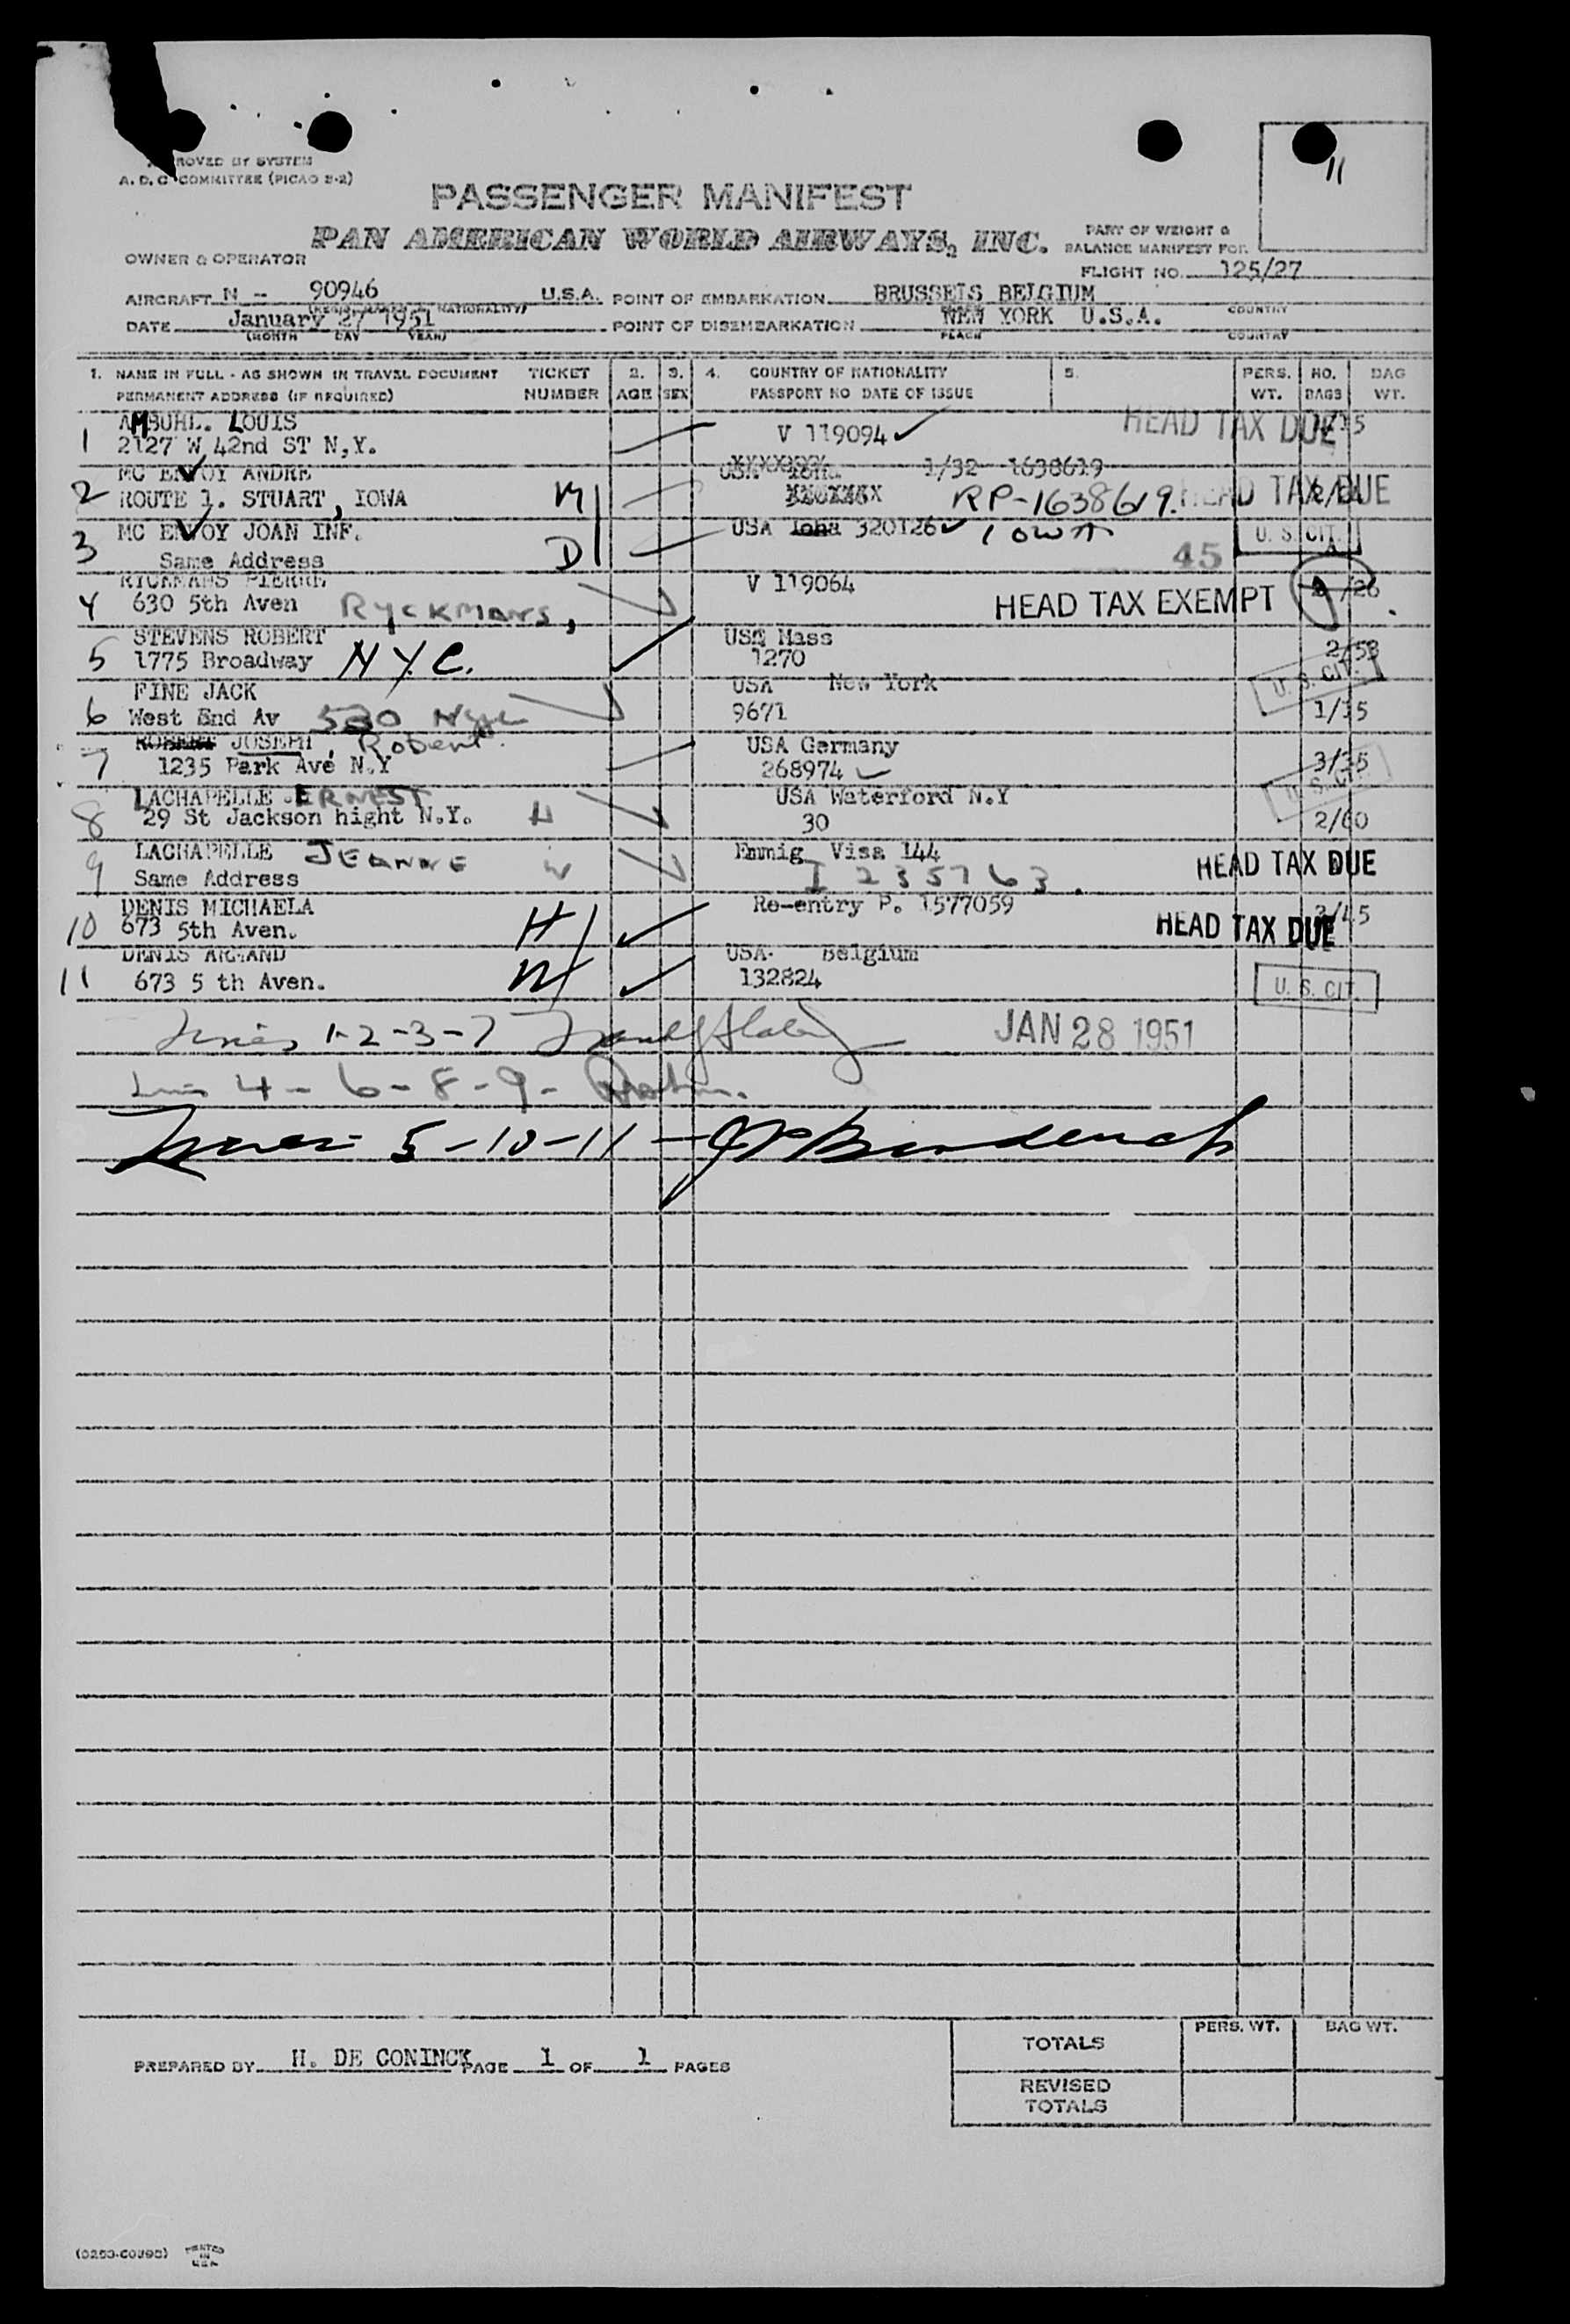 11
ROVED BY SYSTEM
A. D. C COMMITTEE (PICAO 2-2)
PASSENGER MANIFEST
PAN AMERICAN WORLD AIRWAYS, INC.
PART OF WEIGHT &
BALANCE MANIFEST FOR
OWNER & OPERATOR
FLIGHT NO. 125/27
AIRCRAFT N - 90946 U.S.A. POINT OF EMBARKATION BRUSSELS BELGIUM
COUNTRY
DATE January 27 1951 POINT OF DISEMBARKATION NEW YORK U.S.A.
(MONTH DAY YEAR) PLACE COUNTRY
1. NAME IN FULL - AS SHOWN IN TRAVEL DOCUMENT TICKET 2. 3. 4. COUNTRY OF NATIONALITY 5. PERS. NO. BAG
PERMANENT ADDRESS (IF REQUIRED) NUMBER AGE SEX PASSPORT NO DATE OF ISSUE WT. BAGS WT.
AMBUHL. LOUIS V 119094 HEAD TAX DUE
1 2127 W 42nd ST N,Y.
MC ENVOY ANDRE USA 1/32 1638619
2 ROUTE 1. STUART, IOWA M RP-1638619. HEAD TAX DUE
MC ENVOY JOAN INF. USA Ioha 320126 IOWA U. S. CIT.
3 Same Address D 45
RYCKMANS PIERRE V 119064
4 630 5th Aven RYCKMANS, HEAD TAX EXEMPT /26
STEVENS ROBERT USA Mass 2/53
5 1775 Broadway N.Y.C. 1270 U. S. CIT.
FINE JACK USA New York
6 West End Av 530 NYC 9671 1/15
ROBERT JOSEPH, Robert. USA Germany 3/35
7 1235 Park Ave N.Y 268974 U. S. CIT.
LACHAPELLE ERNEST USA Waterford N.Y
8 29 St Jackson hight N.Y. H 30 2/60
LACHAPELLE JEANNE Emmig Visa 144 HEAD TAX DUE
9 Same Address W I 235763.
DENIS MICHAELA Re-entry P. 1577059 /45
10 673 5th Aven. H HEAD TAX DUE
DENIS ARMAND USA- Belgium
11 673 5 th Aven. W 132824 U. S. CIT.
Lines 1-2-3-7 JAN 28 1951
Lines 4-6-8-9-
Lines 5-10-11-
PERS. WT. BAG WT.
TOTALS
PREPARED BY H. DE CONINCK PAGE 1 OF 1 PAGES
REVISED
TOTALS
PRINTED
IN
U.S.A.